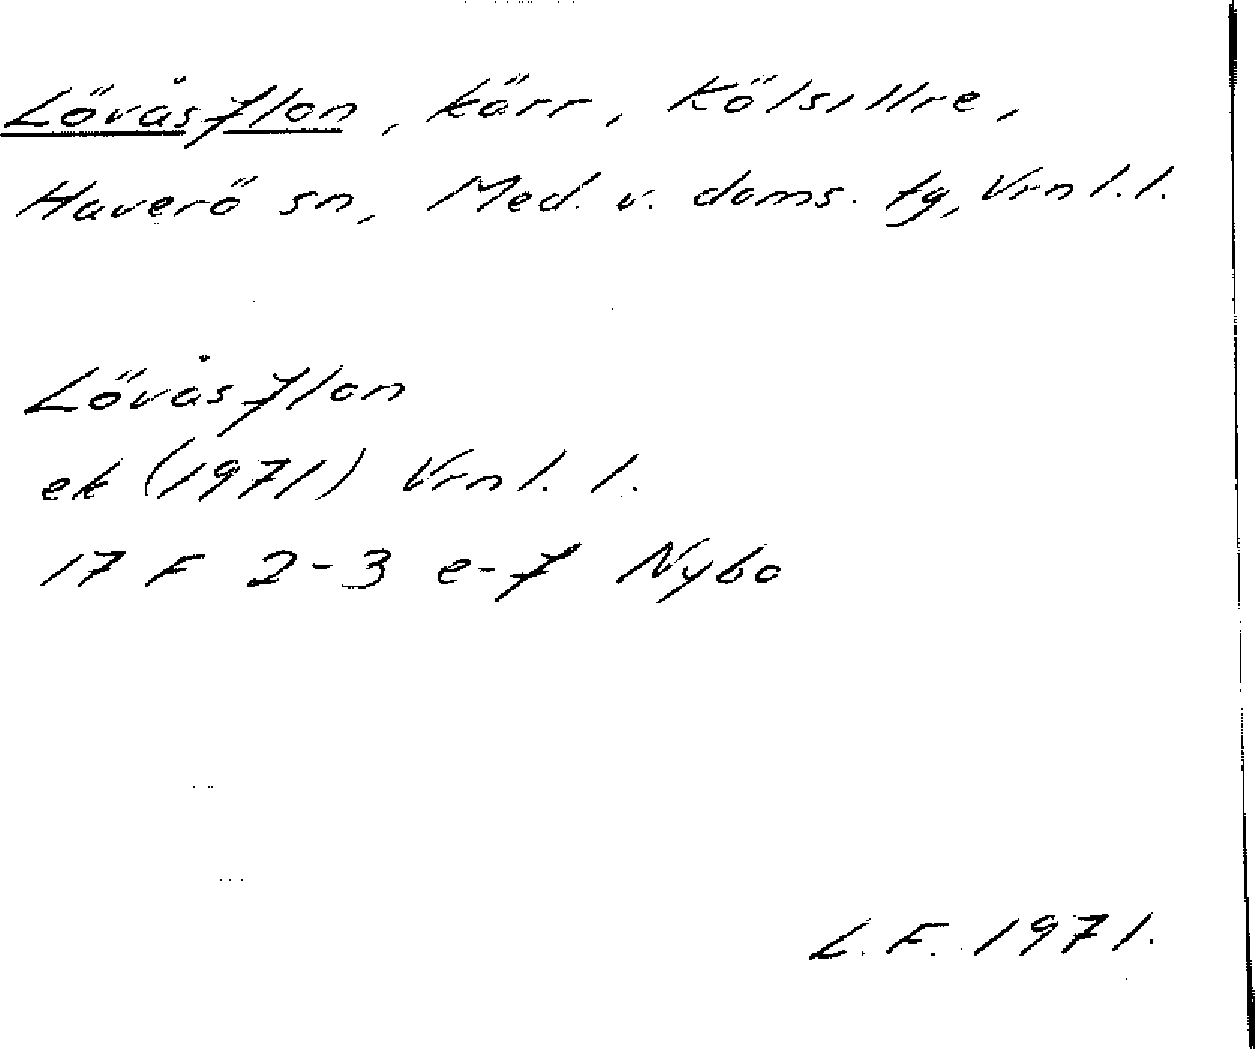 Lövåsflon, kärr, Kölsillre,
Haverö sn, Med. v. doms. tg, Vrnl. l.
Lövåsflon
ek (1971) Vrnl. l.
17 F 2-3 e-f Nybo
L. F. 1971.